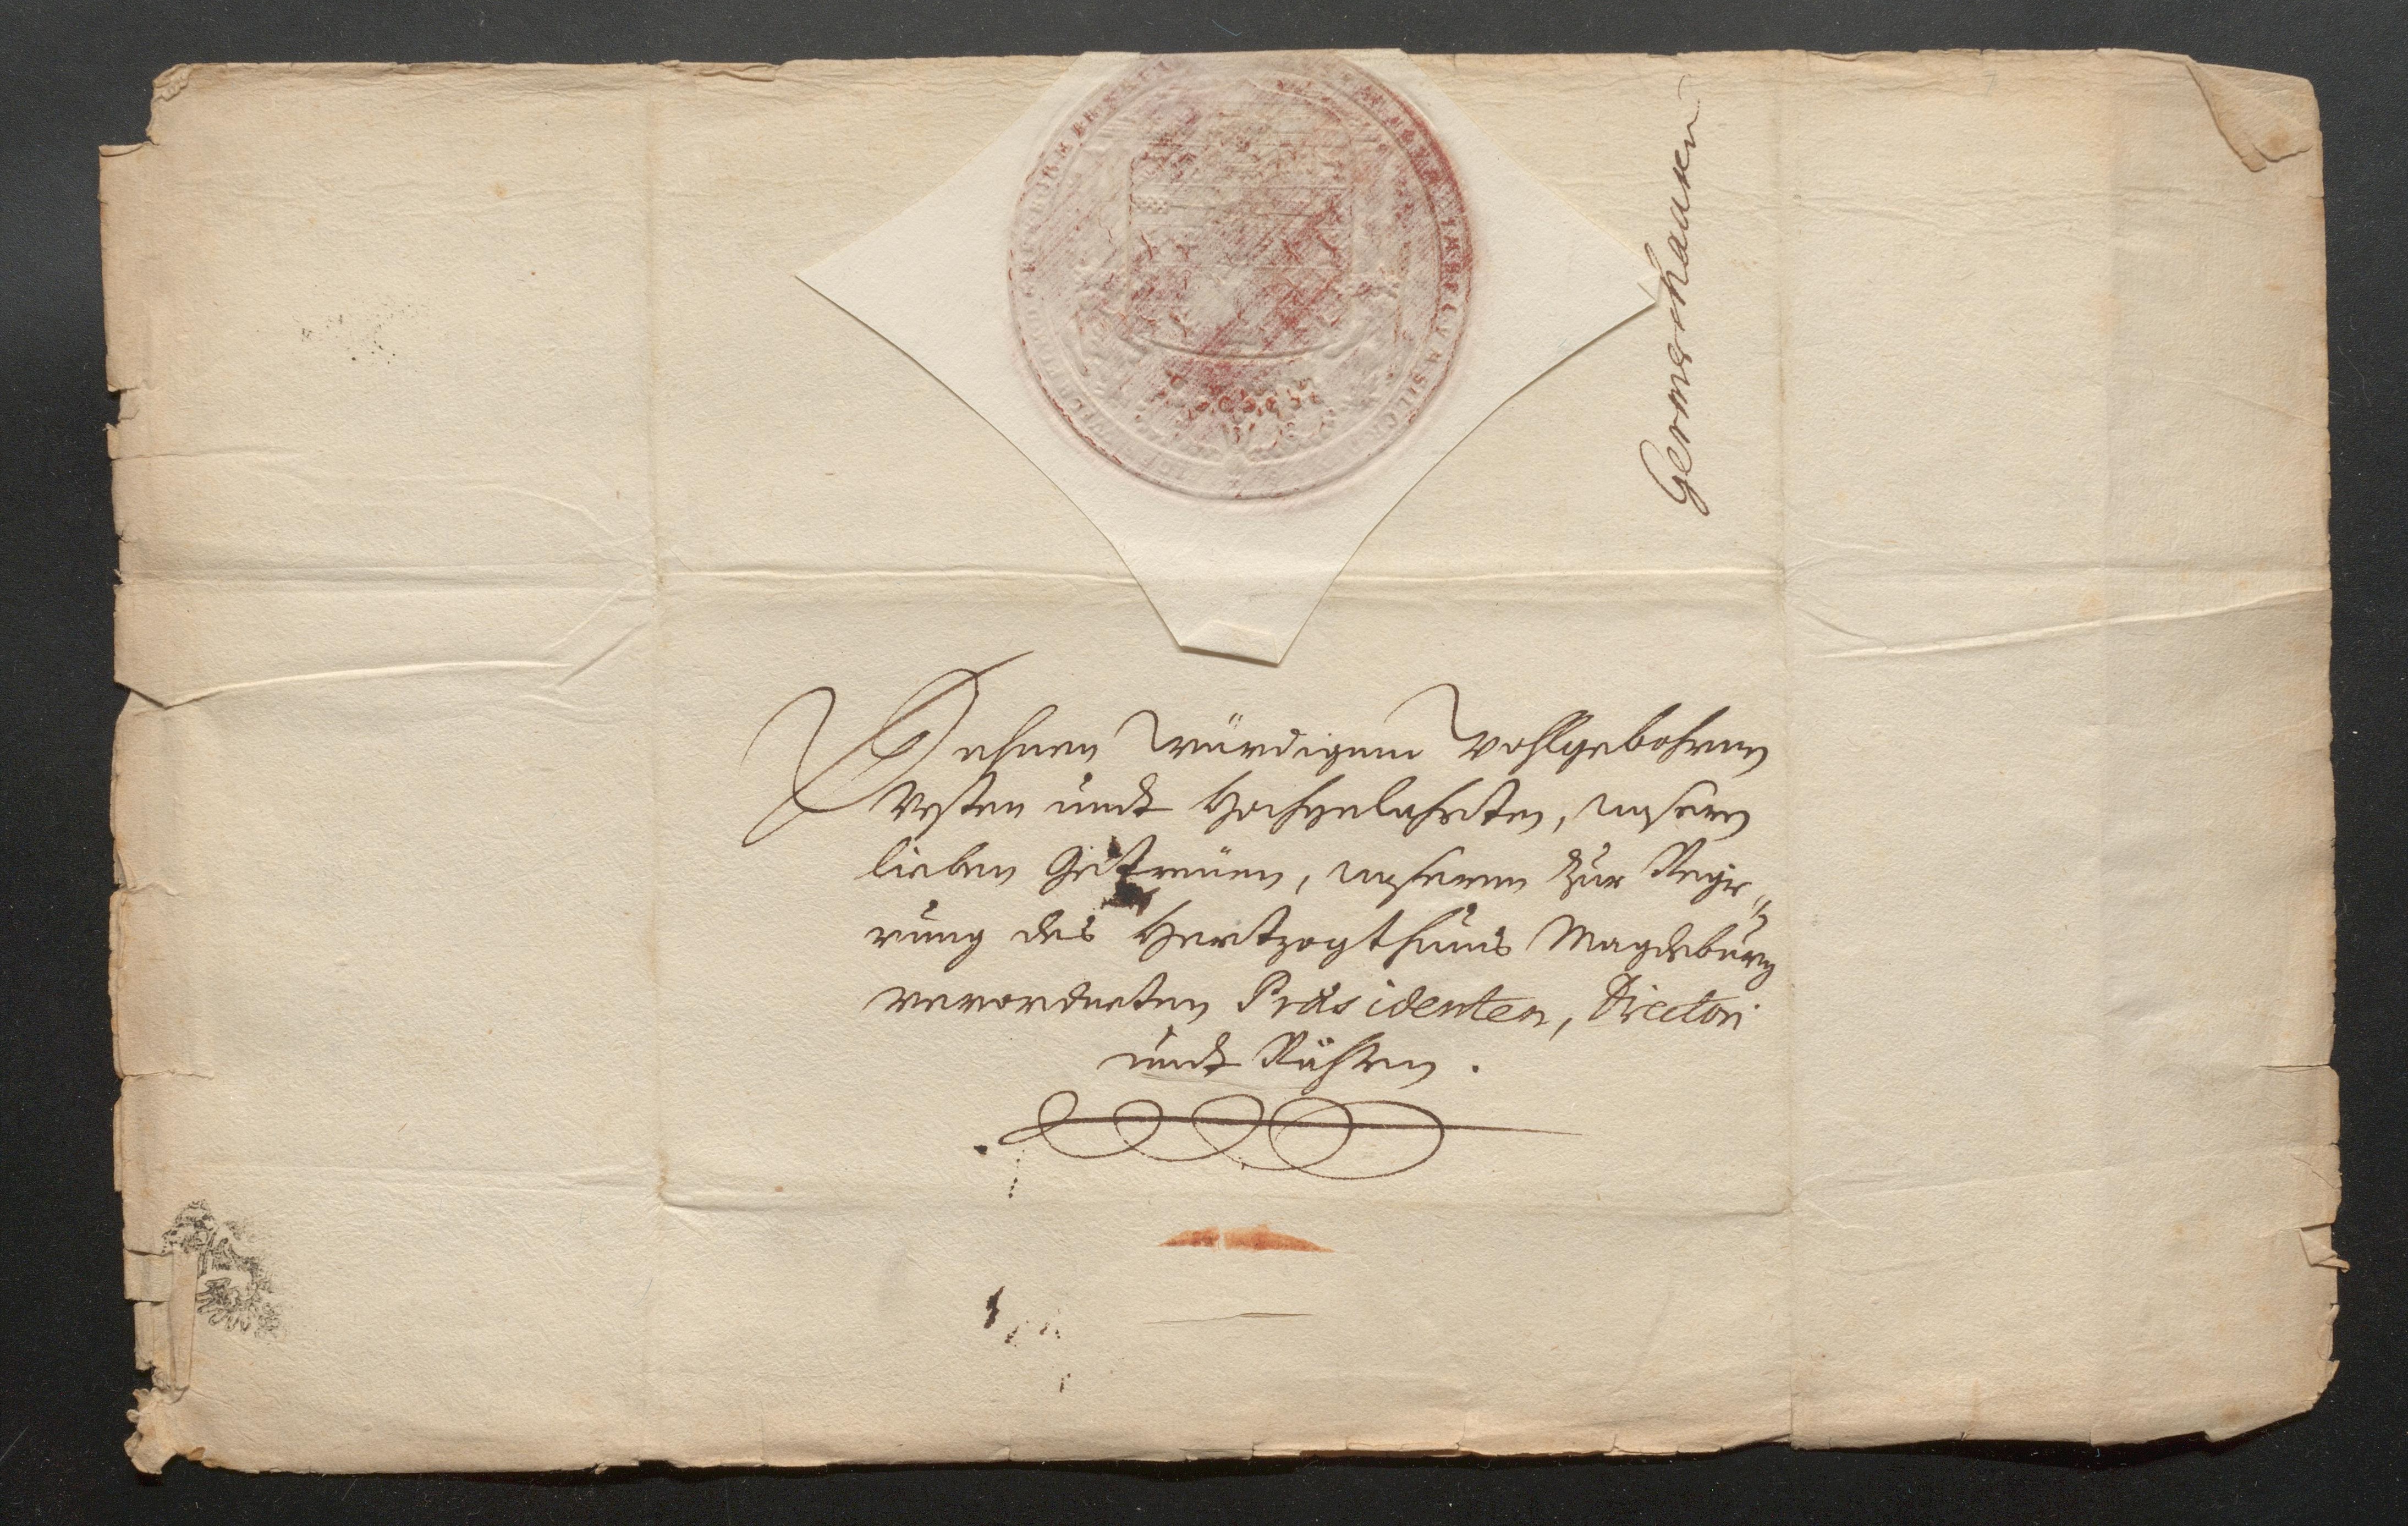 Germershausen
Dehnen Würdigenn Wohlgebohrnen
Vesten undt Hochgelahrten, unsern
lieben Getreüen, unserenn zur Regie„
rung des Hertzogthums Magdeburg
verordneten Präsidenten, Directori
undt Räthen.